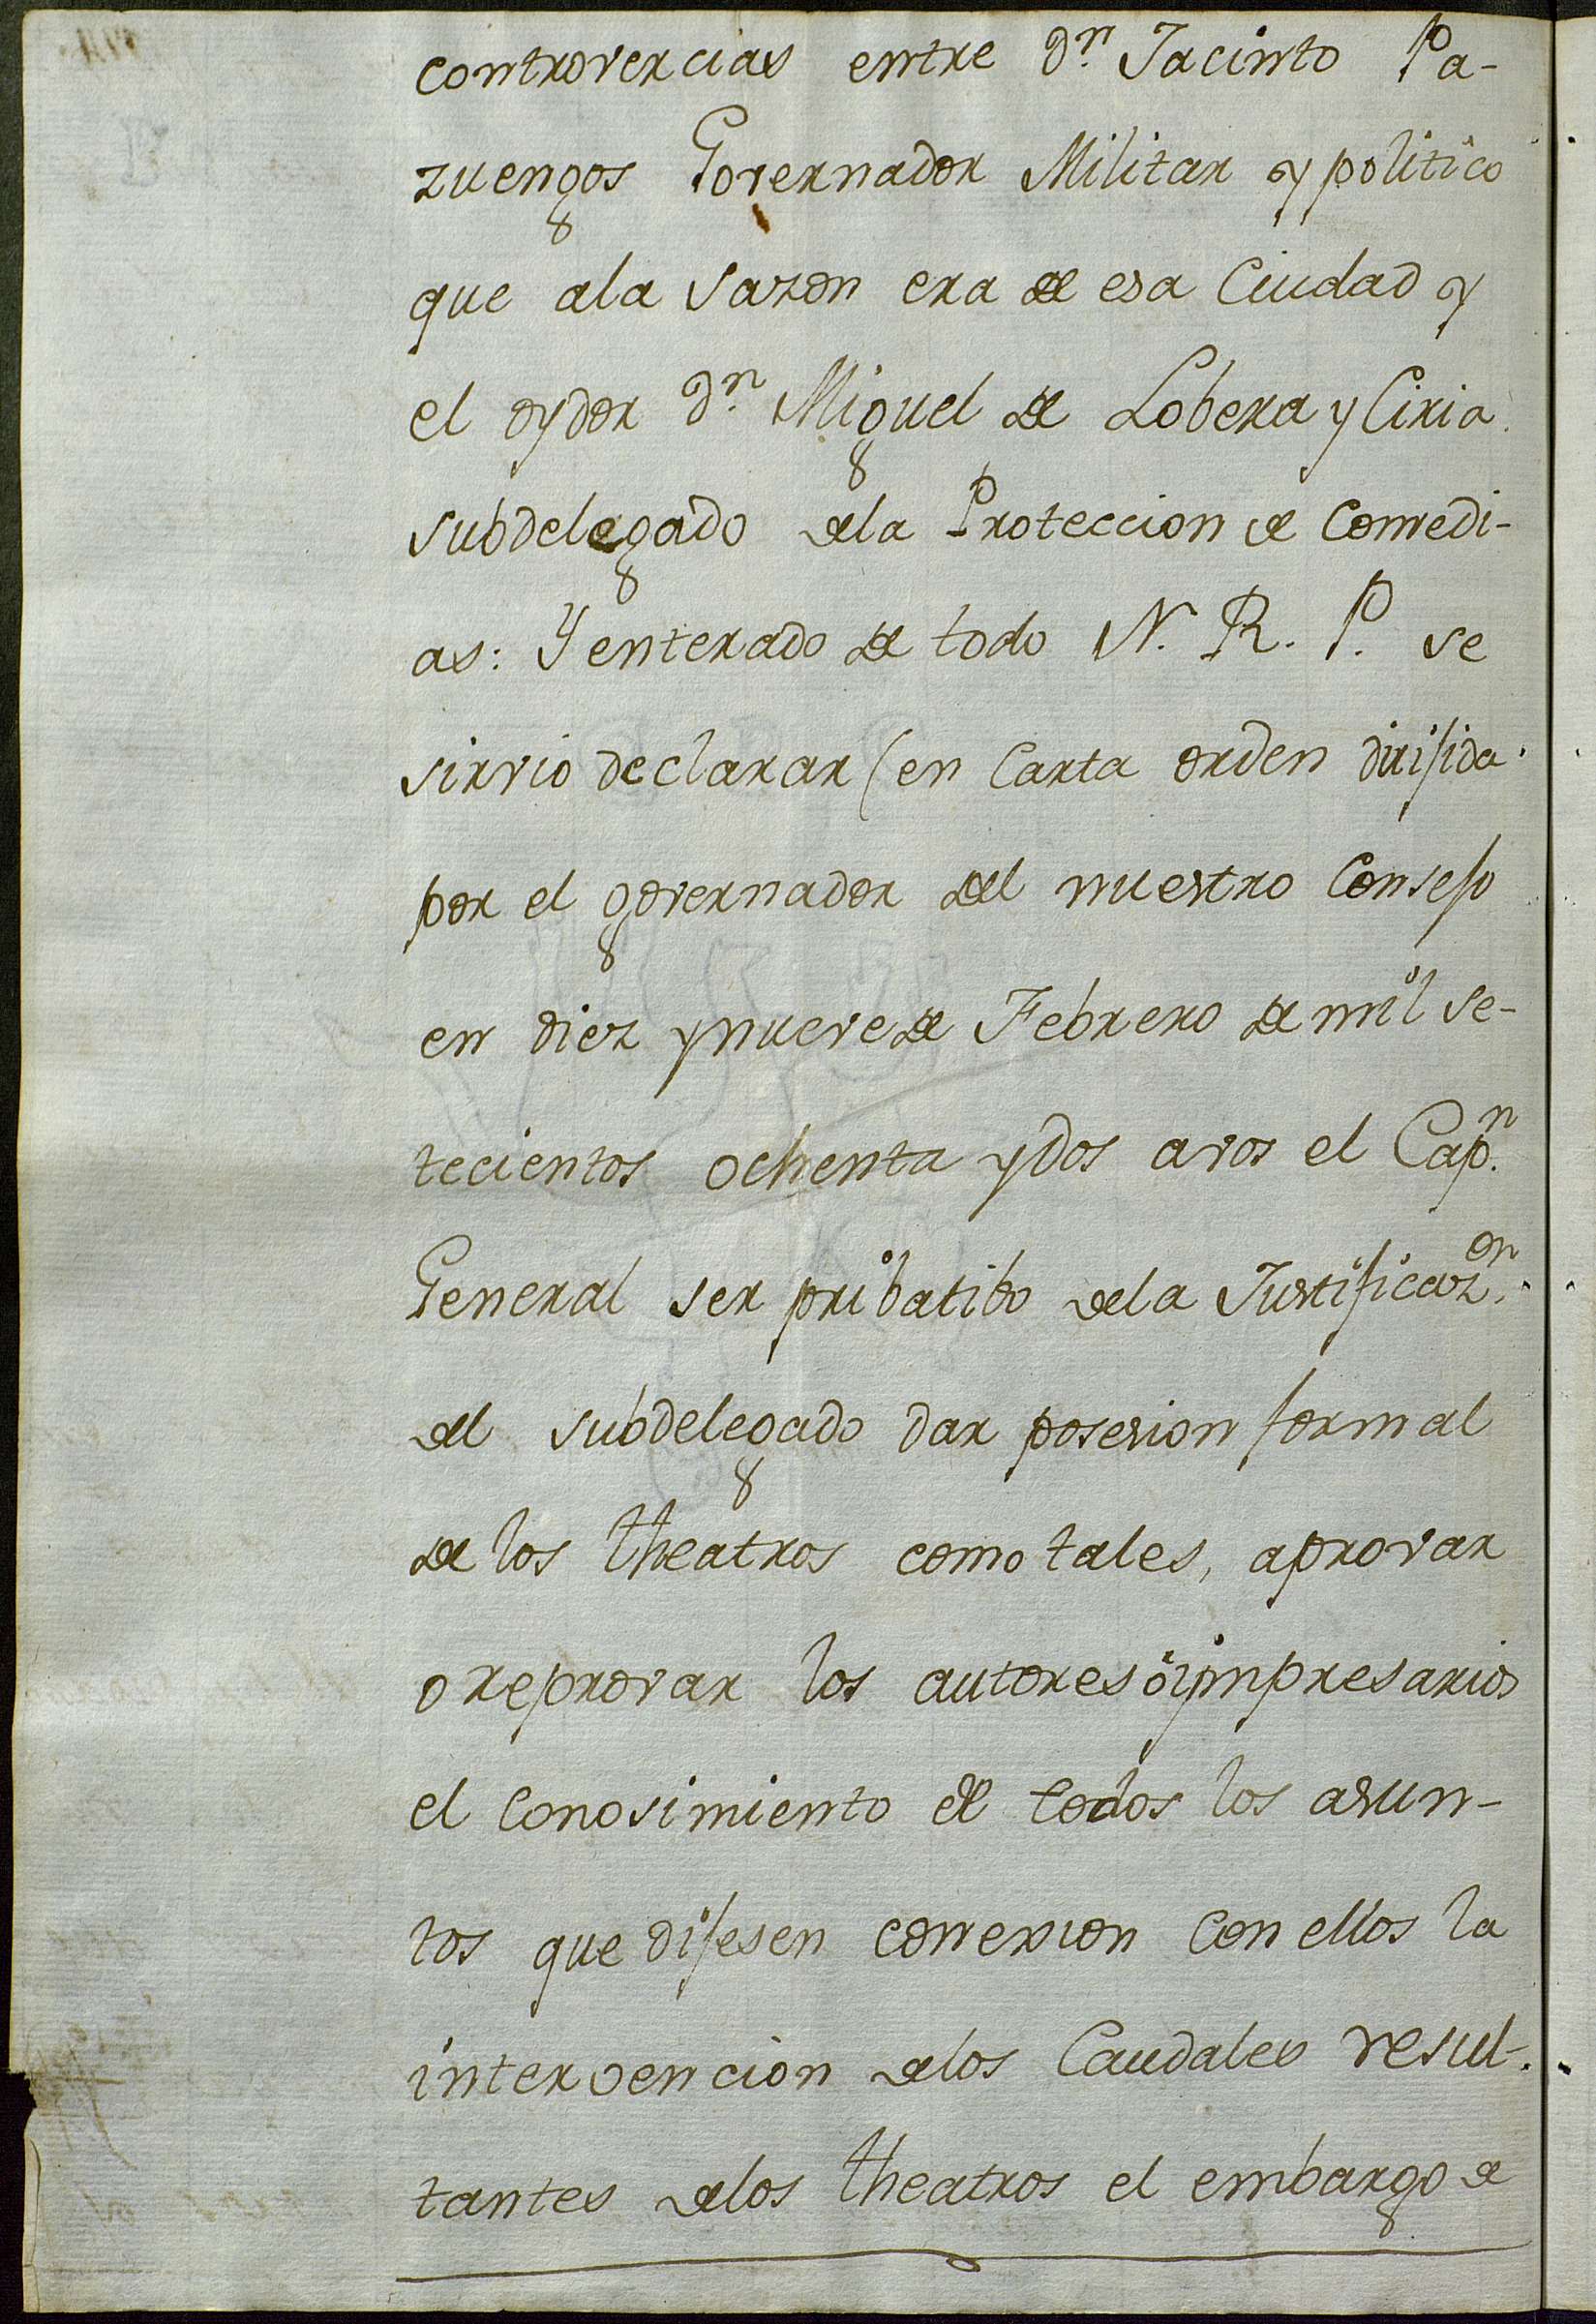 controvercias entre dn. Jacinto Pa-
zuengos Governador Militar y politico
que ala sazon era de esa Ciudad y
el oydor dn. Miguel de Lobera y Ciria
subdelegado dela Proteccion de Comedi-
as: Y enterado de todo N. R. P. se
sirvio declarar (en Carta orden dirijida
por el governador del nuestro Consejo
en diez y nueve de Febrero de mil se-
tecientos ochenta y dos a vos el Capn.
General ser pribatibo dela Justificazon.
del subdelegado dar posesion formal
de los theatros como tales, aprovar
o reprovar los autores ó impresarios
el Conosimiento de todos los asun-
tos que dijesen conexion con ellos la
intervencion delos Caudales resul-
tantes delos theatros el embargo de